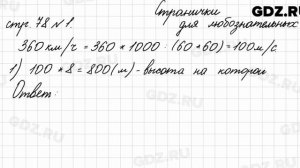 GDZ.RU
Странички
стр. 78 № 1. для любознательных
360 км/ч = 360 * 1000 : (60 * 60) = 100 м/с
1) 100 * 8 = 800 (м) - высота на которой
Ответ:
GDZ.RU